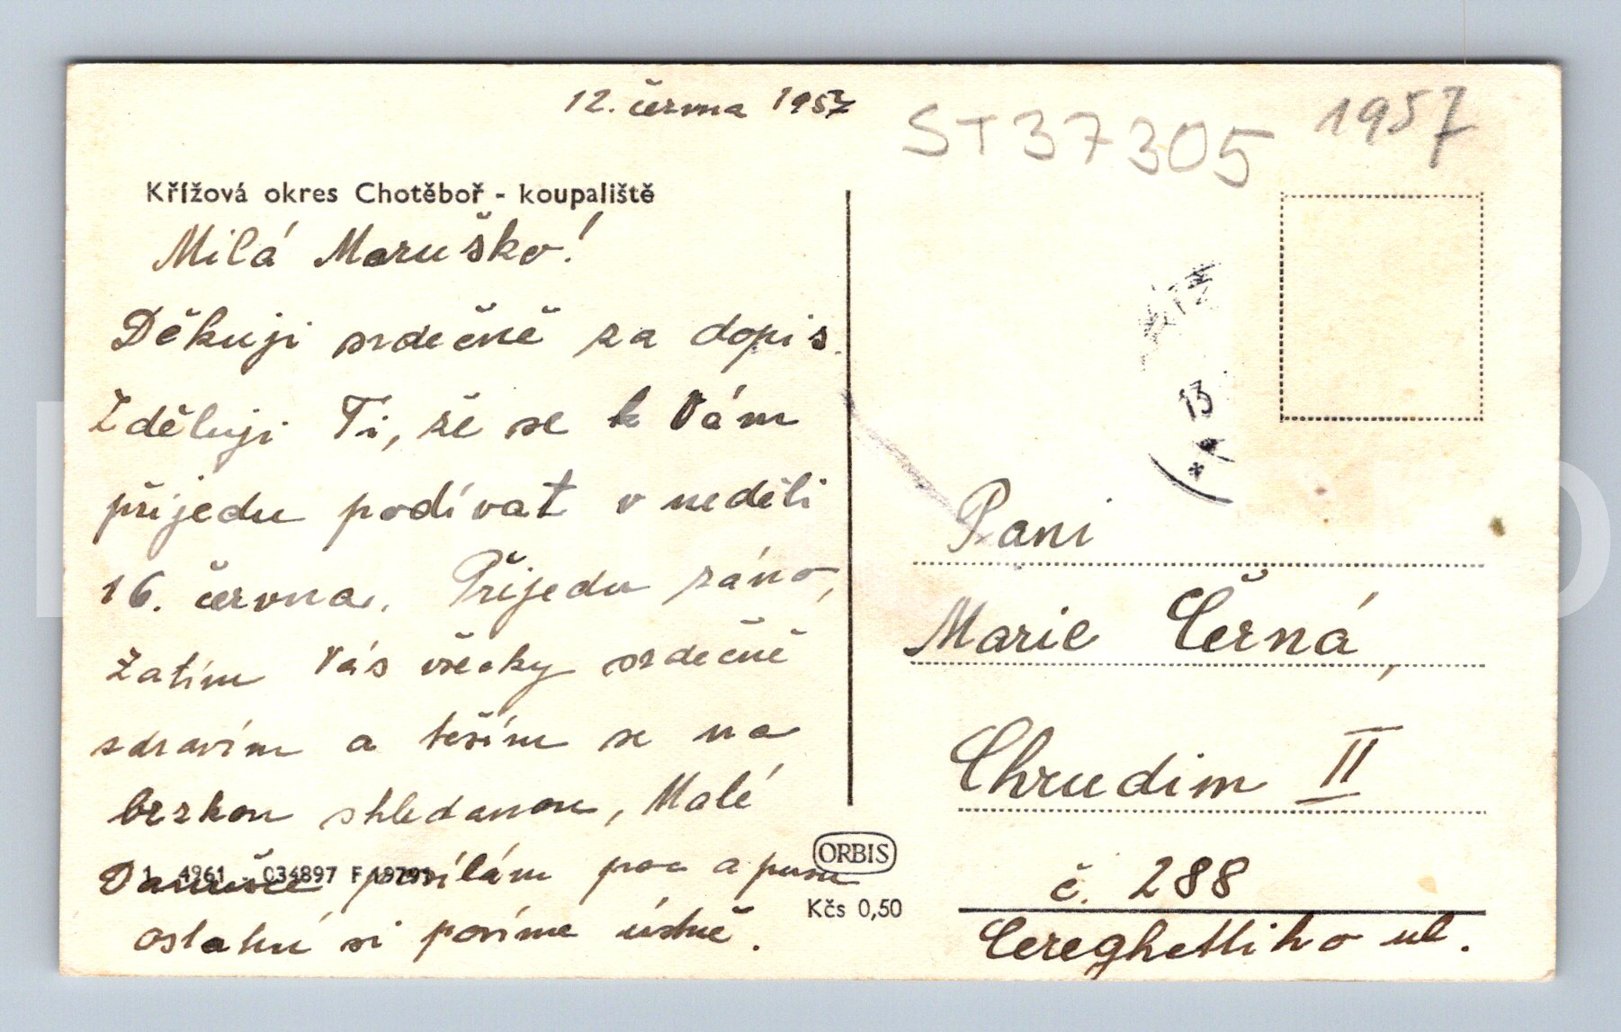 12. června 1957
ST37305
1957
Křížová okres Chotěboř - koupaliště
Milá Maruško!
Děkuji srdečně za dopis.
Zděluji Ti, že se k Vám
přijedu podívat v neděli
16. června. Přijedu ráno,
Zatím Vás všecky srdečně
zdravím a těším se na
brzkou shledanou, Malé
Danušce posílám pac a pusu
ostatní si povíme ústně.
1 4961 034897
ORBIS
Kčs 0,50
13
Paní
Marie Černá,
Chrudim II
č. 288
Cereghettiho ul.